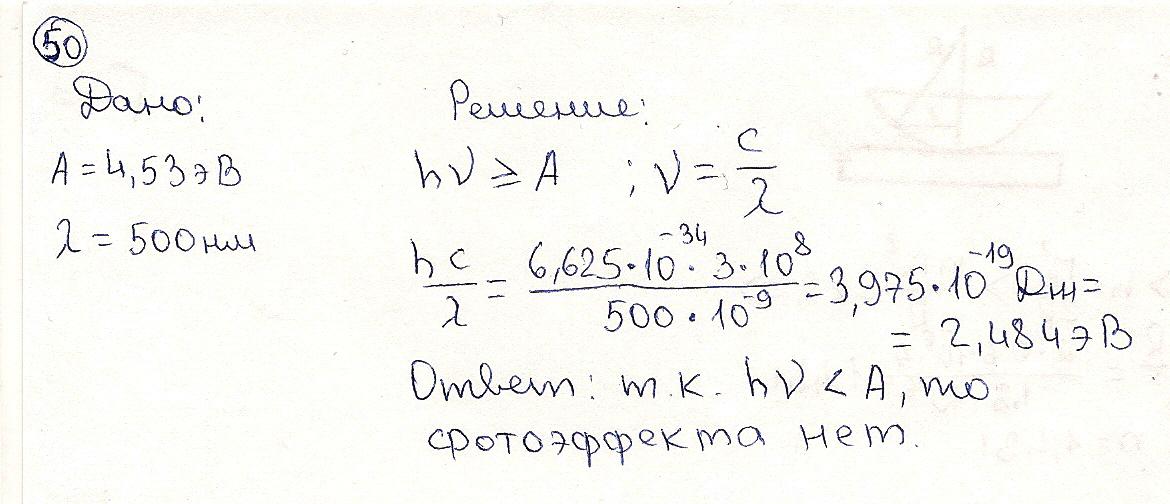 50
Дано:
A = 4,53 эВ
λ = 500 нм
Решение:
hν ≥ A ; ν = c/λ
hc/λ = 6,625·10⁻³⁴·3·10⁸/500·10⁻⁹ = 3,975·10⁻¹⁹ Дж =
= 2,484 эВ
Ответ: т.к. hν < A, то
фотоэффекта нет.